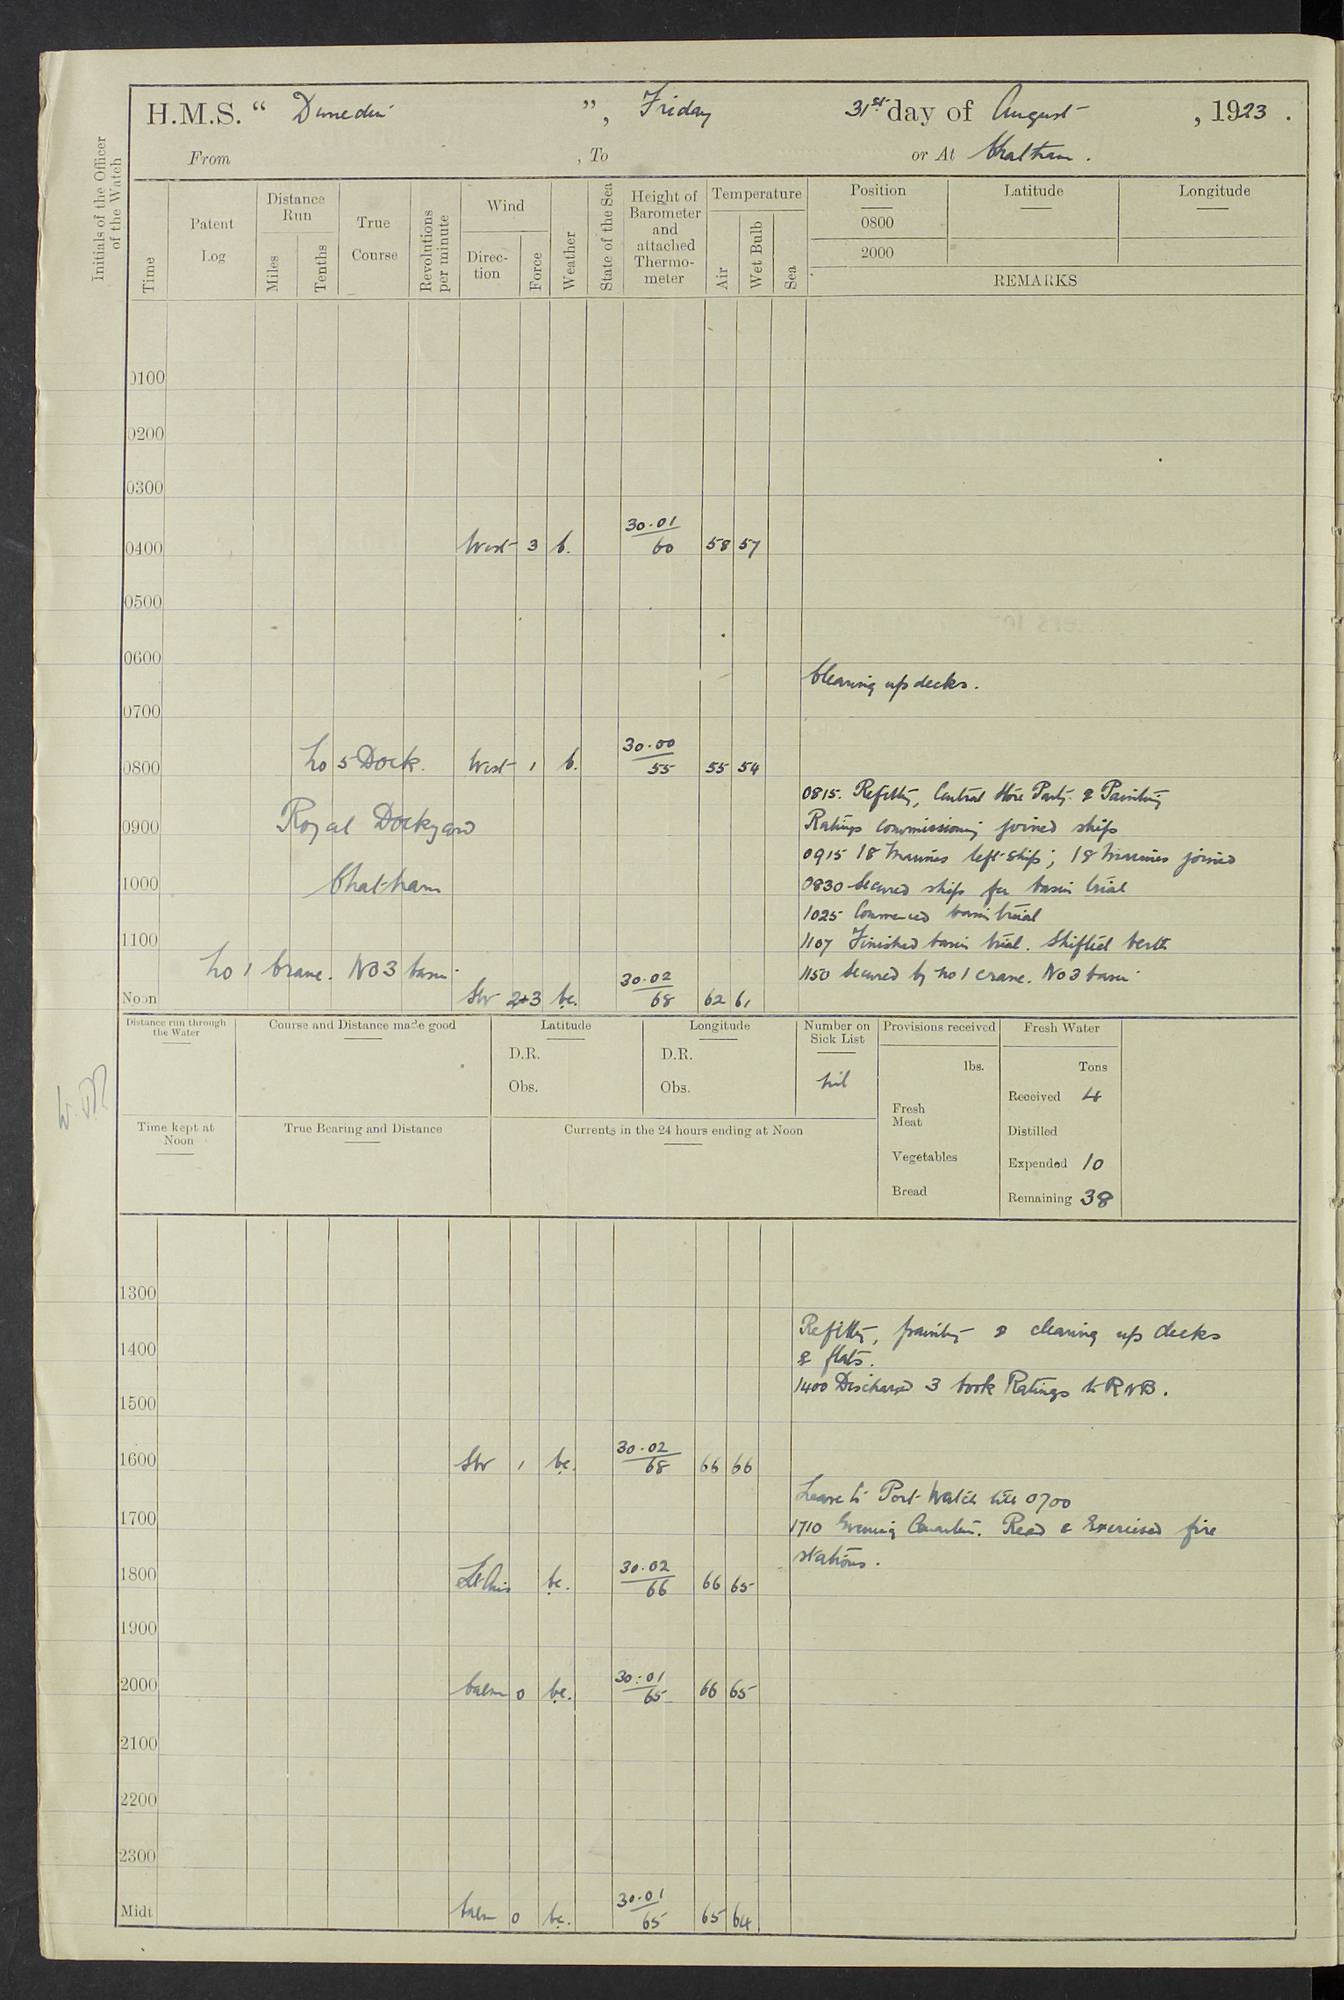 H.M.S. “ Dunedin ”, Friday 31st day of August , 1923 .
From , To or At Chatham .
Initials of the Officer of the Watch
Time
Patent Log
Distance Run
Miles
Tenths
True Course
Revolutions per minute
Wind
Direction
Force
Weather
State of the Sea
Height of Barometer and attached Thermometer
Temperature
Air
Wet Bulb
Sea
Position Latitude Longitude
0800
2000
REMARKS
0100
0200
0300
0400 West 3 b. 30.01 60 58 57
0500
0600
Clearing up decks.
0700
0800 No 5 Dock. West 1 b. 30.00 55 55 54
0815. Refitting, Central Store Party & Painting
0900 Royal Dockyard Ratings commissioning joined ship
0915 18 Marines left ship; 18 Marines joined
1000 Chatham 0830 Secured ship for basin trial
1025 Commenced basin trial
1100 1107 Finished basin trial. Shifted berth
No 1 Crane. No 3 basin. 1150 Secured by No 1 crane. No 3 basin.
Noon SW 2+3 bc. 30.02 68 62 61
Distance run through the Water
Course and Distance made good
Latitude
D.R.
Obs.
Longitude
D.R.
Obs.
Number on Sick List
Nil
Provisions received
lbs.
Fresh Meat
Vegetables
Bread
Fresh Water
Tons
Received 4
Distilled
Expended 10
Remaining 38
Time kept at Noon
True Bearing and Distance
Currents in the 24 hours ending at Noon
1300
Refitting, painting & clearing up decks
1400 & flats.
1400 Discharged 3 Cook Ratings to RNB.
1500
1600 SW 1 bc. 30.02 68 66 66
Leave to Port Watch till 0700
1700 1710 Evening Quarters. Read & Exercised fire
stations.
1800 Lt Airs bc. 30.02 66 66 65
1900
2000 Calm 0 bc. 30.01 65 66 65
2100
2200
2300
Midt Calm 0 bc. 30.01 65 65 64